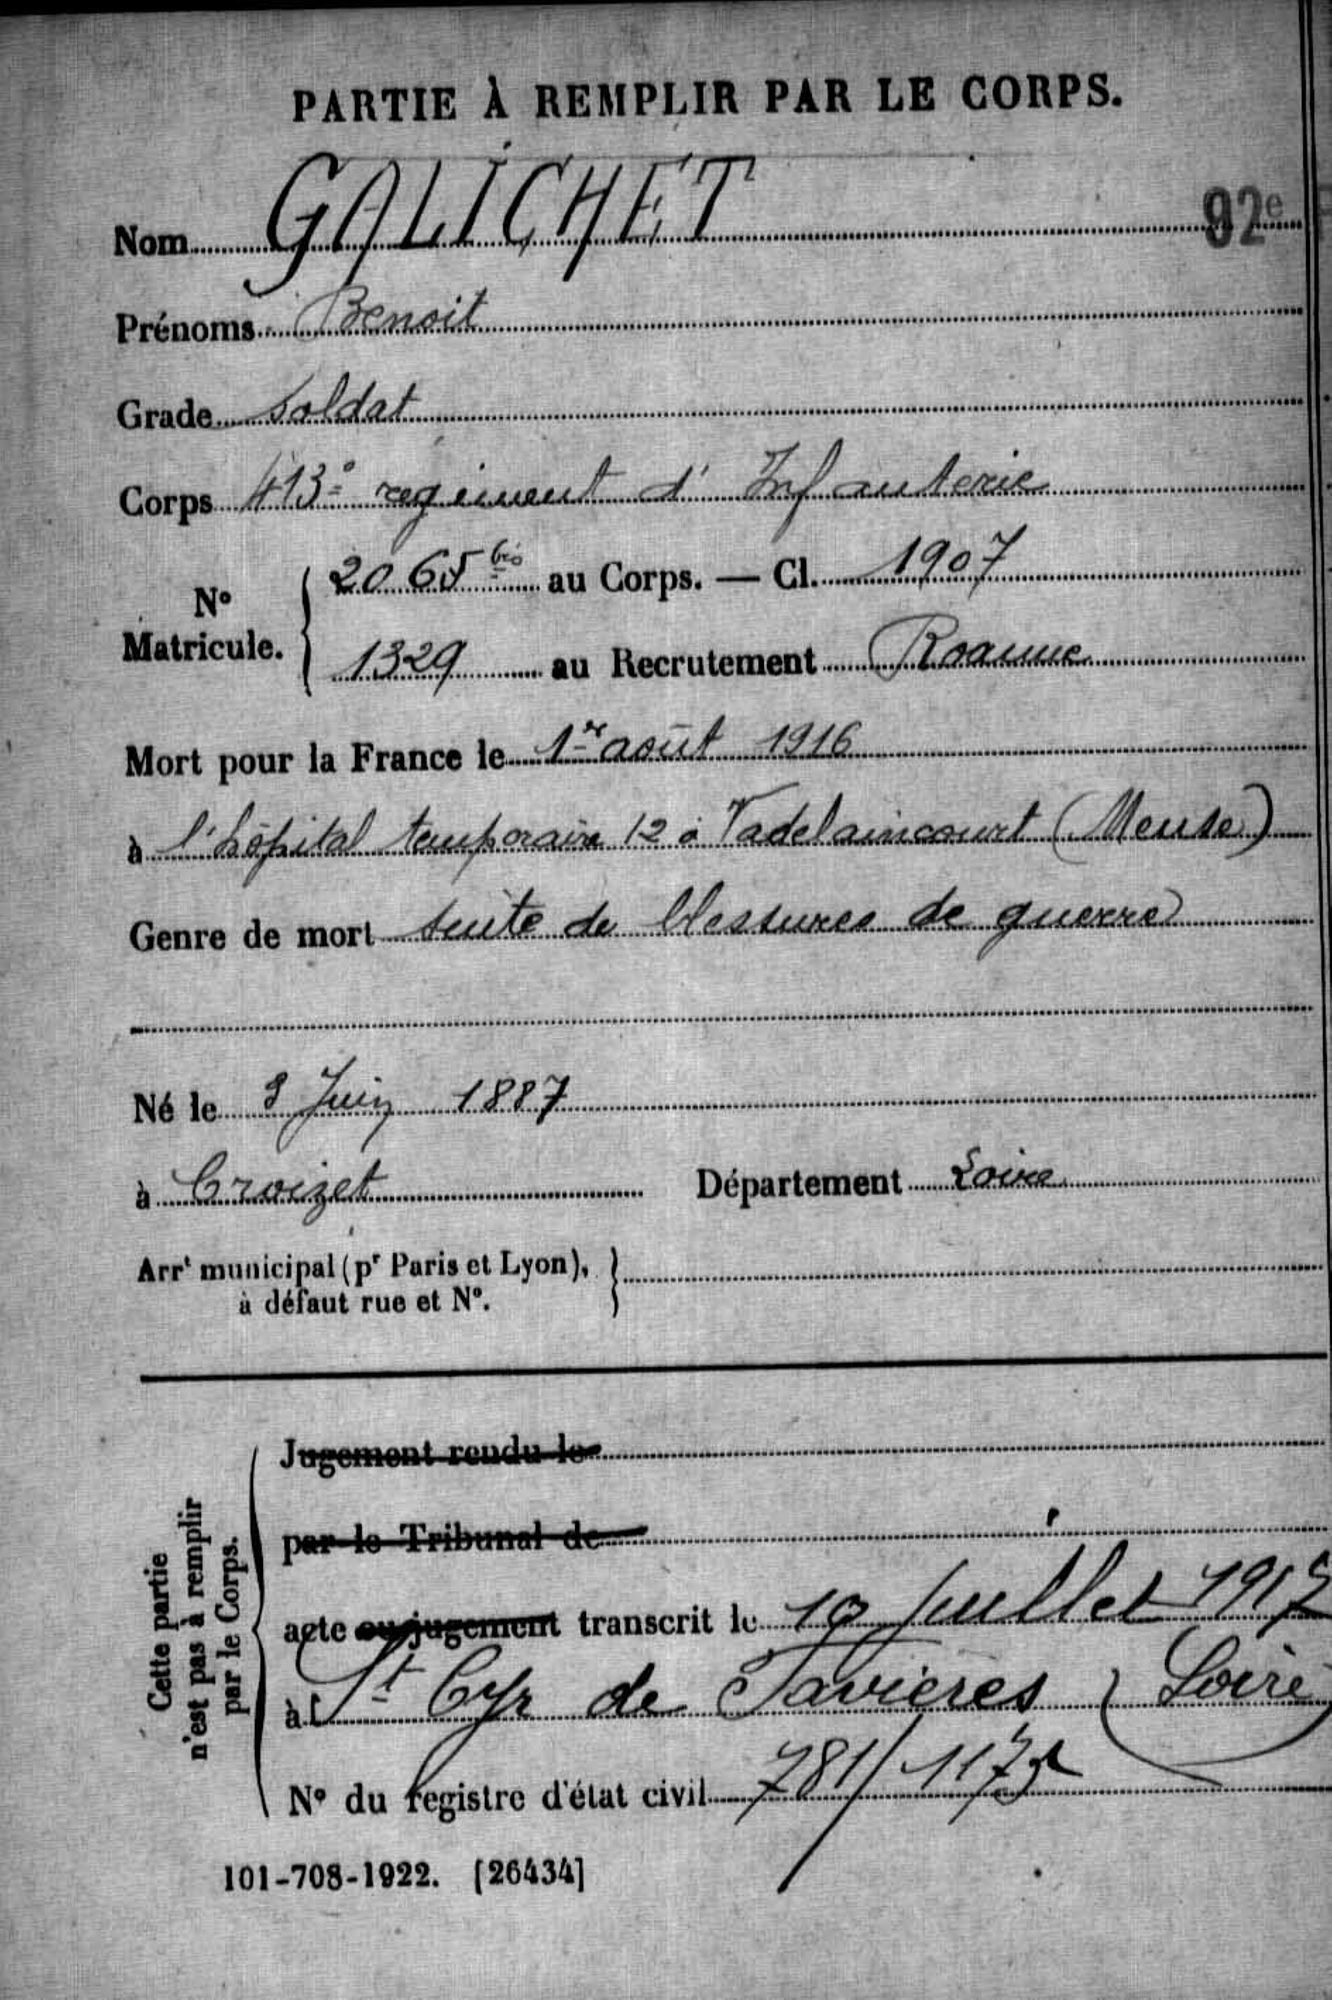 PARTIE À REMPLIR PAR LE CORPS.
Nom GALICHET
92e
Prénoms Benoit
Grade Soldat
Corps 413e regiment d'Infanterie
No Matricule. 2065 bis au Corps. — Cl. 1907
1329 au Recrutement Roanne
Mort pour la France le 1er août 1916
à l'hôpital temporaire 12 à Vadelaincourt (Meuse)
Genre de mort suite de blessures de guerre
Né le 8 Juin 1887
à Croizet Département Loire
Arrt municipal (pr Paris et Lyon),
à défaut rue et No.
Cette partie
n'est pas à remplir
par le Corps.
Jugement rendu le
par le Tribunal de
acte ou jugement transcrit le 19 Juillet 1917
à St Cyr de Favières (Loire
No du registre d'état civil 781/
101-708-1922. [26434]